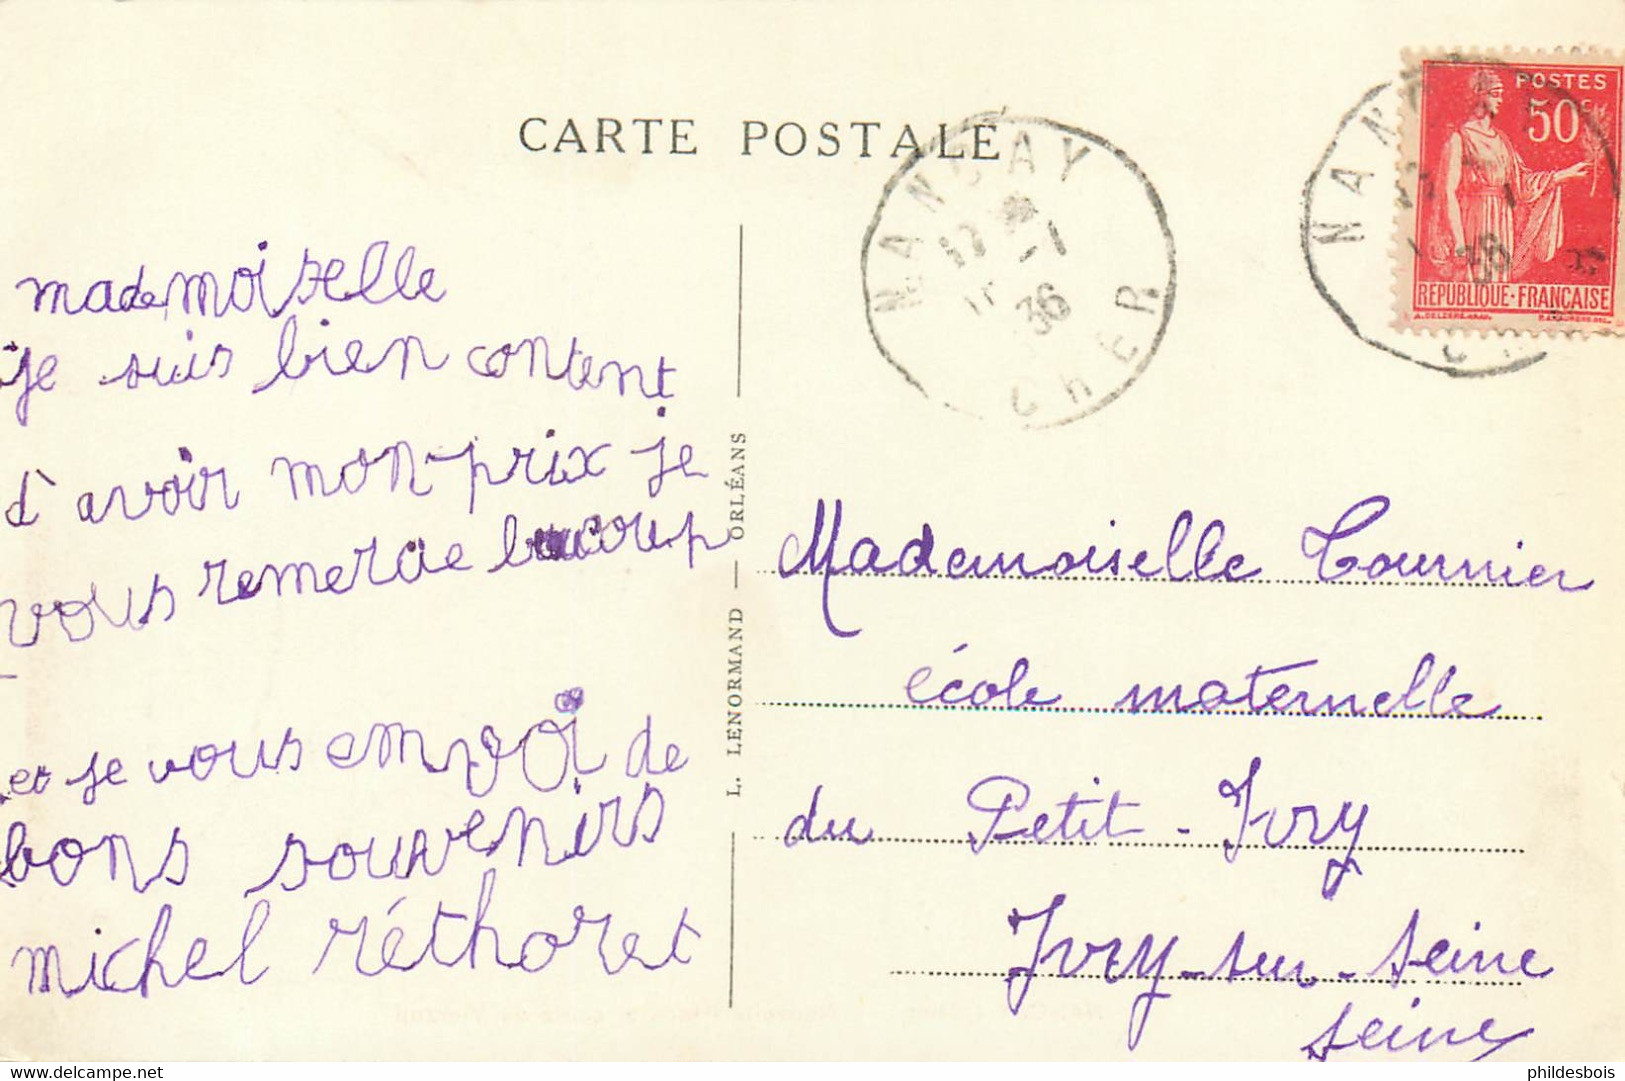 CARTE POSTALE
NANÇAY
17
-1
36
CHER
POSTES
50c
REPUBLIQUE·FRANÇAISE
mademoiselle
je suis bien content
d'avoir mon prix je
vous remercie beaucoup
et je vous envoi de
bons souvenirs
michel réthoret
L. LENORMAND — ORLÉANS
Mademoiselle Tournier
école maternelle
du Petit-Ivry
Ivry-sur-Seine
Seine
delcampe.net
phildesbois